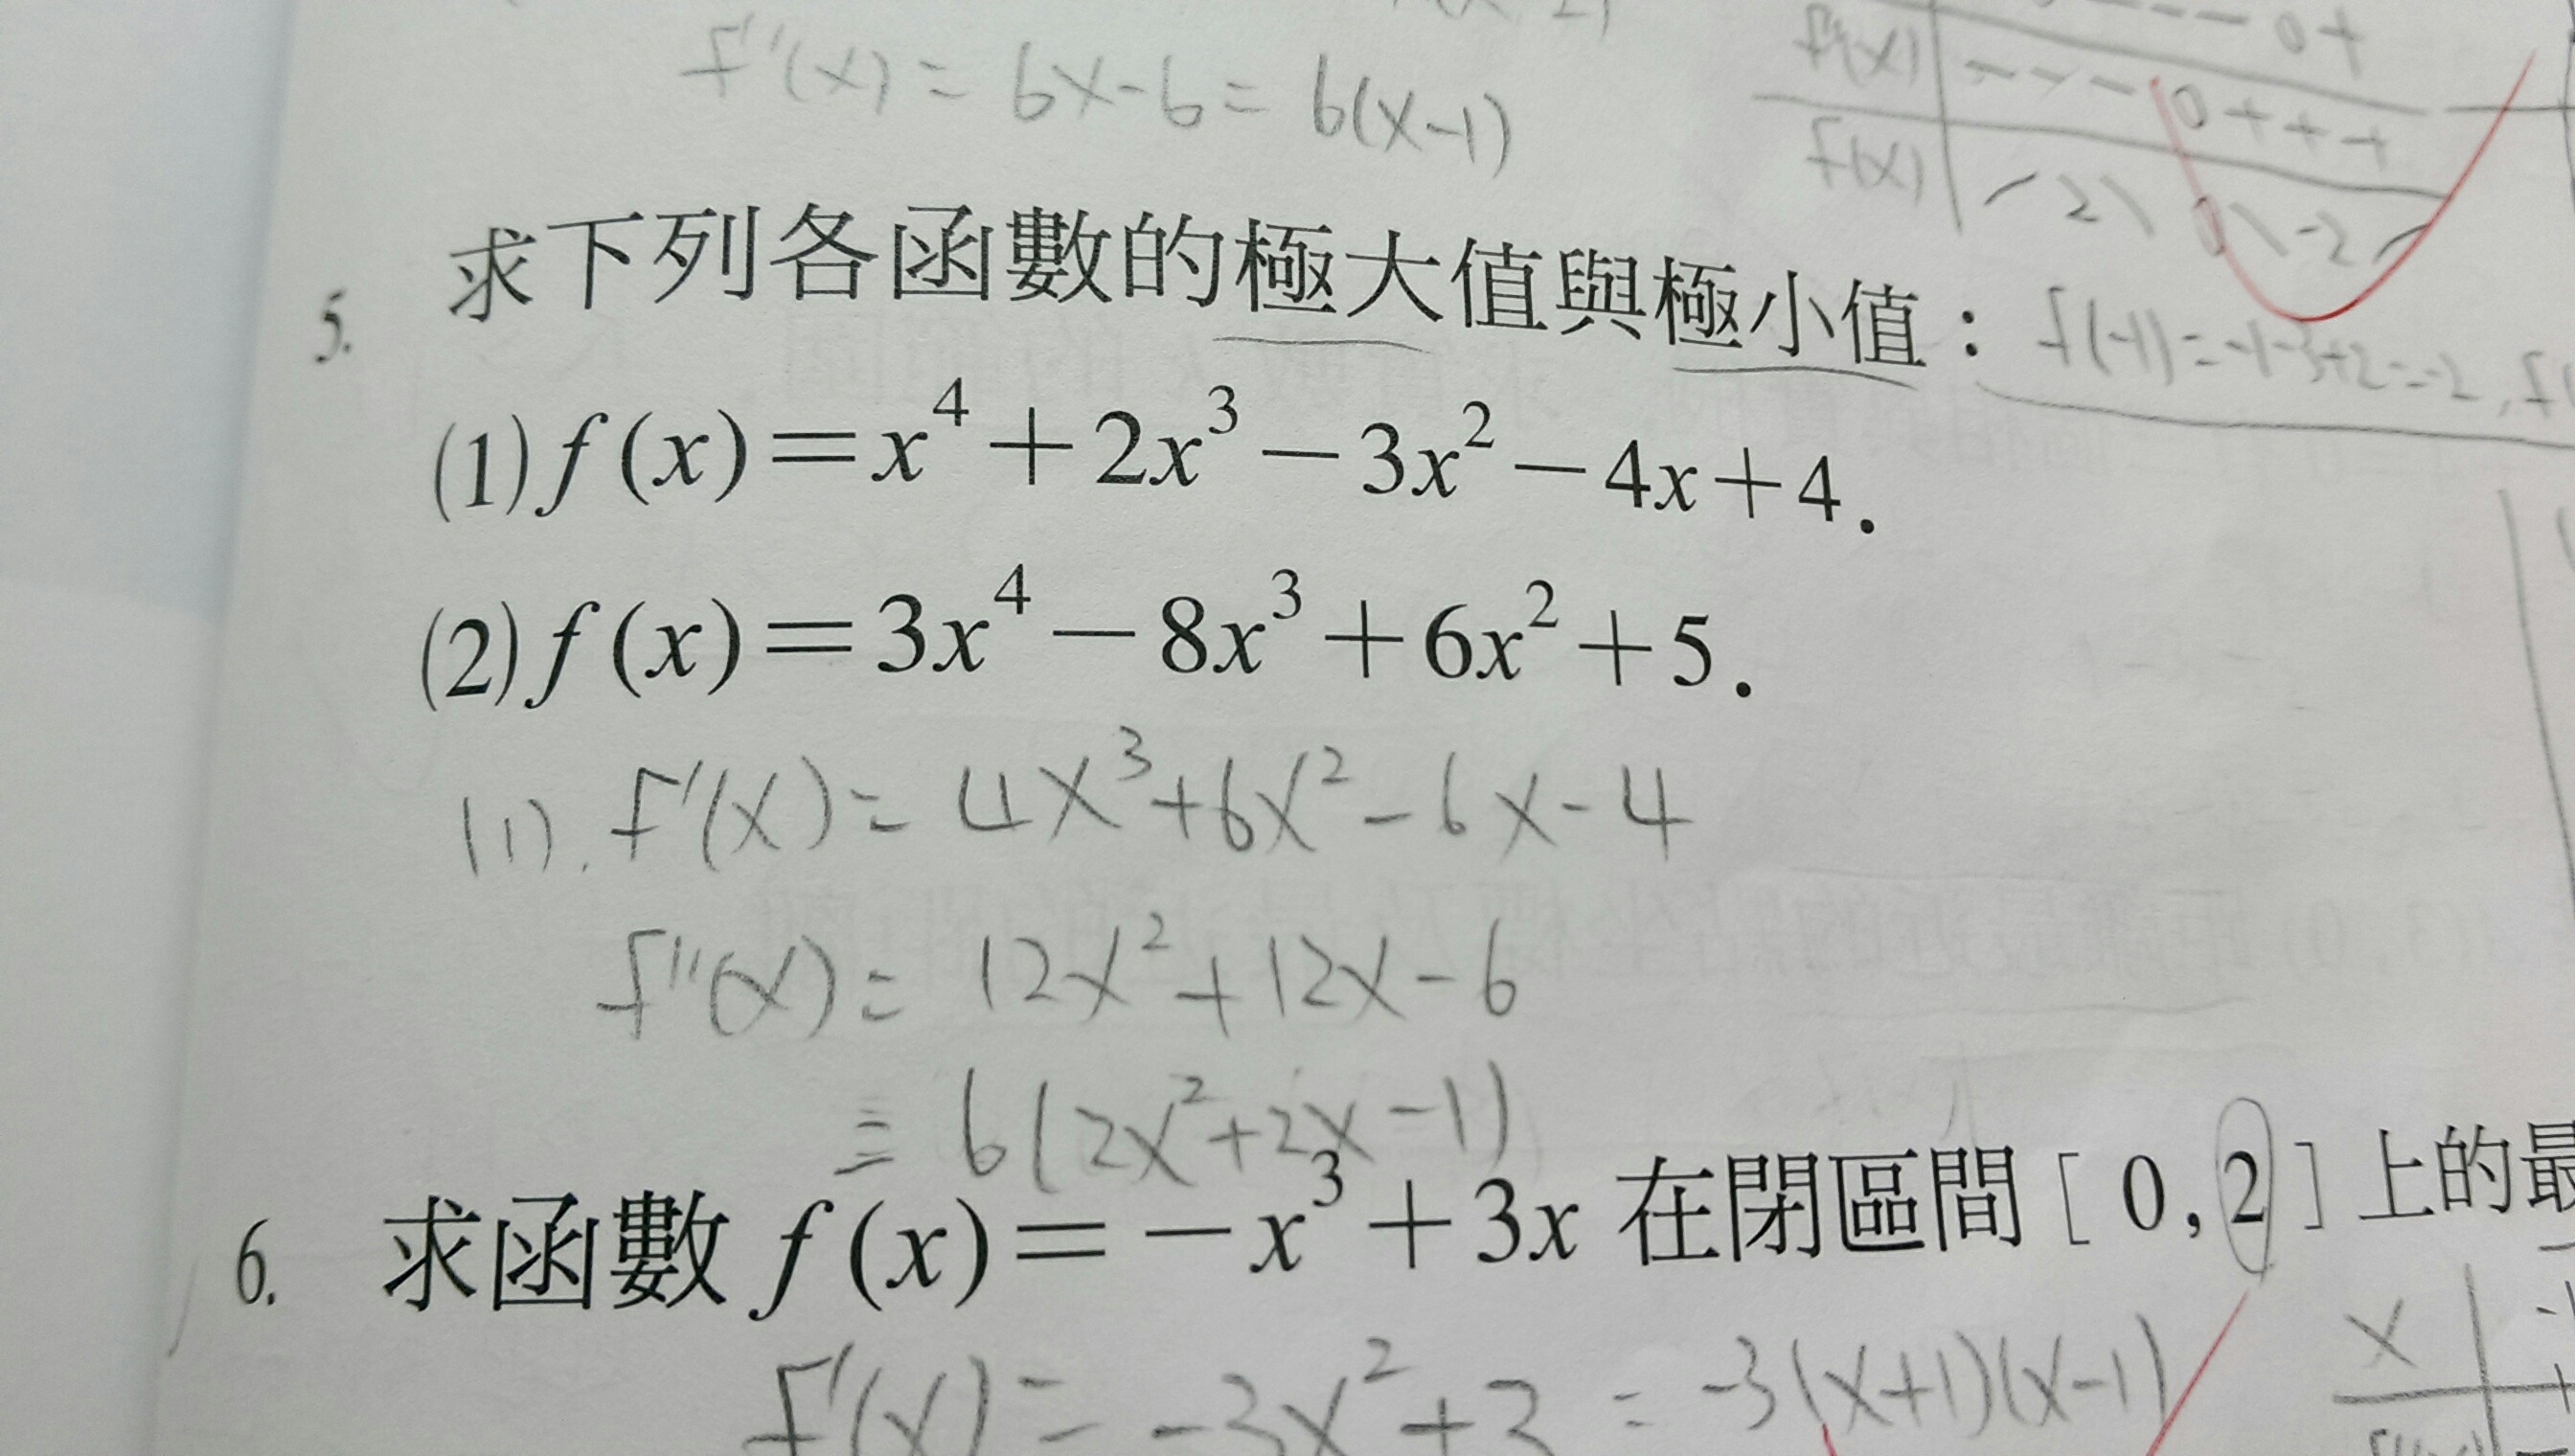 f''(x) = 6x-6 = 6(x-1)
f''(x) | - - - - 0 + + +
f(x) 2 0 -2
5. 求下列各函數的極大值與極小值：
f(-1)=-1-3+2=-2, f
(1) f(x)=x⁴+2x³-3x²-4x+4.
(2) f(x)=3x⁴-8x³+6x²+5.
(1). f'(x) = 4x³+6x²-6x-4
f''(x) = 12x²+12x-6
= 6(2x²+2x-1)
6. 求函數 f(x)=-x³+3x 在閉區間 [0,2] 上的最
f'(x) = -3x²+3 = -3(x+1)(x-1)
x